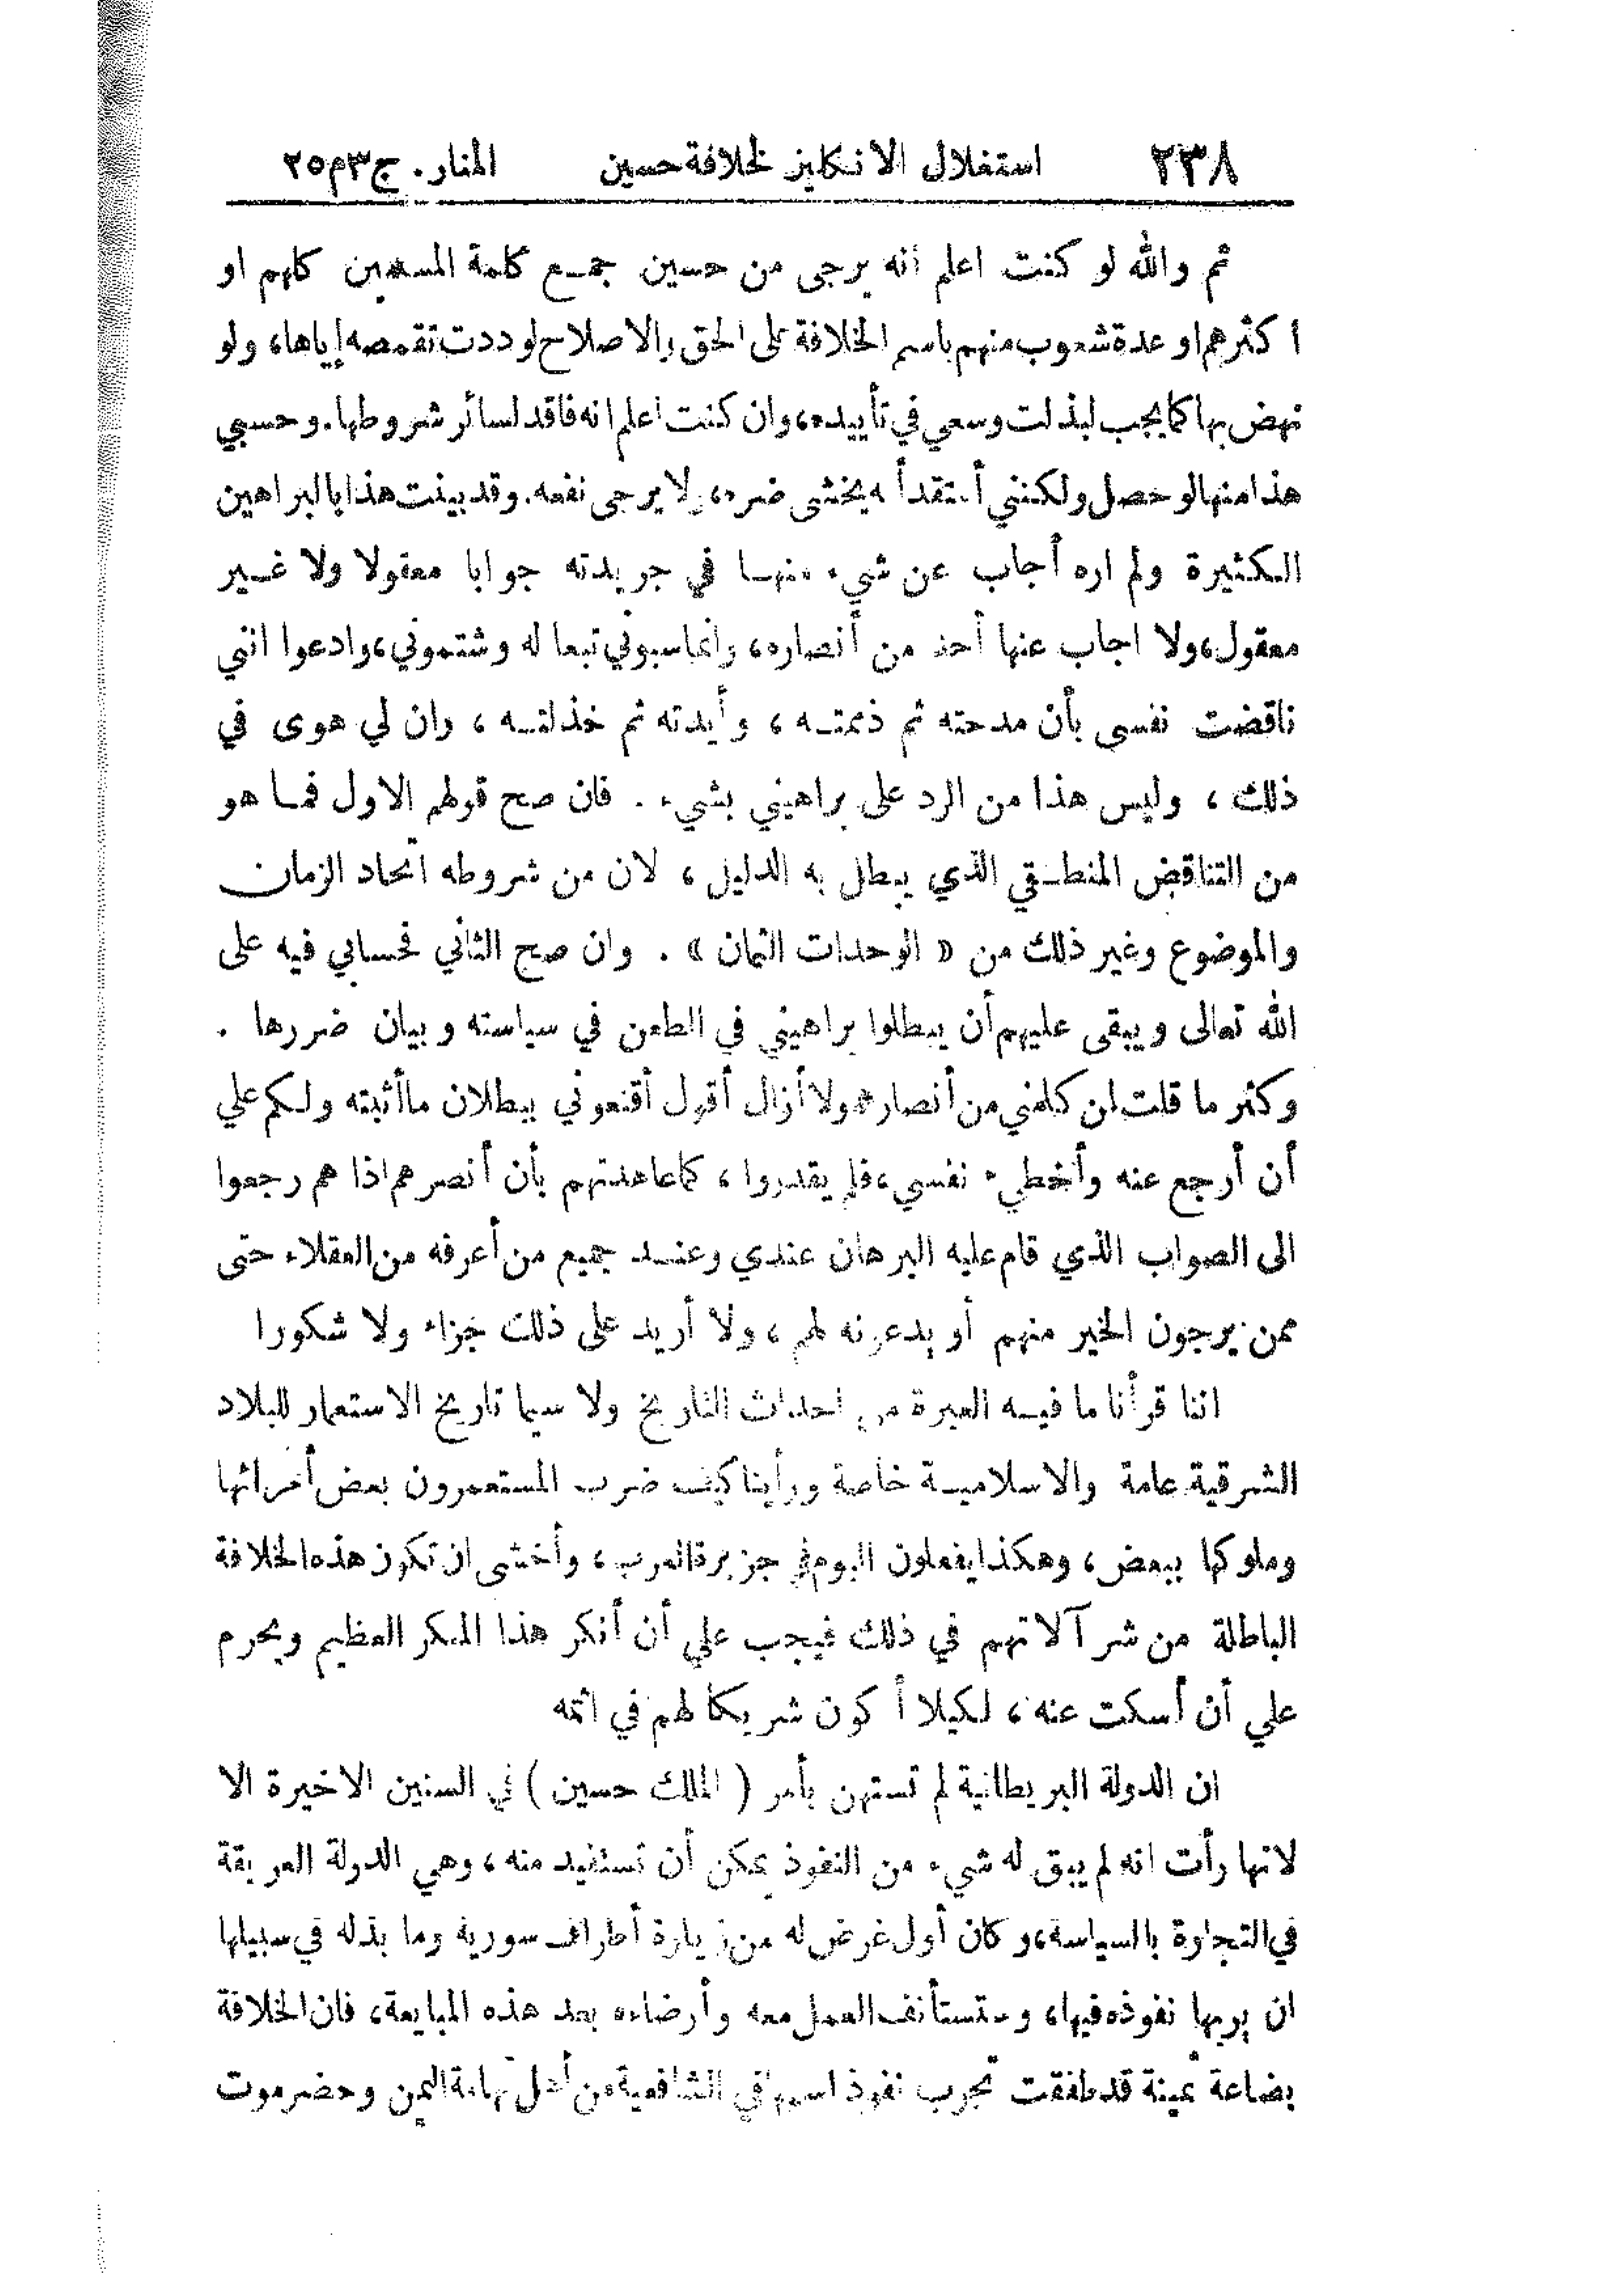 ٢٣٨ استغلال الانكليز لخلافة حسين المنار . ج٣م٢٥
ثم والله لو كنت اعلم أنه يرجى من حسين جمع كلمة المسلمين كلهم او
أكثرهم او عدة شعوب منهم باسم الخلافة على الحق والاصلاح لوددت تقمصه إياها، ولو
نهض بها كما يجب لبذلت وسعي في تأييده، وان كنت اعلم انه فاقد لسائر شروطها. وحسبي
هذا منها لو حصل ولكنني أعتقد أنه يخشى ضره، ولا يرجى نفعه. وقد بينت هذا بالبراهين
الكثيرة ولم اره أجاب عن شيء منها في جريدته جوابا معقولا ولا غير
معقول، ولا اجاب عنها أحد من أنصاره، وانما سبوني تبعا له وشتموني، وادعوا انني
ناقضت نفسي بأن مدحته ثم ذممته ، وأيدته ثم خذلته ، وان لي هوى في
ذلك ، وليس هذا من الرد على براهيني بشيء . فان صح قولهم الاول فما هو
من التناقض المنطقي الذي يبطل به الدليل ، لان من شروطه اتحاد الزمان
والموضوع وغير ذلك من « الوحدات الثمان » . وان صح الثاني فحسابي فيه على
الله تعالى ويبقى عليهم أن يبطلوا براهيني في الطعن في سياسته وبيان ضررها .
وكثر ما قلت لمن كلمني من أنصاره ولا أزال أقول أقنعوني ببطلان ما أثبته ولكم علي
أن أرجع عنه وأخطيء نفسي، فلم يقدروا ، كما عاهدتهم بأن أنصرهم اذا هم رجعوا
الى الصواب الذي قام عليه البرهان عندي وعند جميع من أعرفه من العقلاء حتى
ممن يرجون الخير منهم أو يدعونه لهم ، ولا أريد على ذلك جزاء ولا شكورا
اننا قرأنا ما فيه العبرة من احداث التاريخ ولا سيما تاريخ الاستعمار للبلاد
الشرقية عامة والاسلامية خاصة ورأينا كيف ضرب المستعمرون بعض أمرائها
وملوكها ببعض ، وهكذا يفعلون اليوم في جزيرة العرب ، وأخشى ان تكون هذه الخلافة
الباطلة من شر آلاتهم في ذلك فيجب علي أن أنكر هذا المنكر العظيم ويحرم
علي أن أسكت عنه ، لكيلا أكون شريكا لهم في اثمه
ان الدولة البريطانية لم تستهن بأمر ( الملك حسين ) في السنين الاخيرة الا
لانها رأت انه لم يبق له شيء من النفوذ يمكن أن تستفيد منه ، وهي الدولة العريقة
في التجارة بالسياسة، وكان أول غرض له من زيارة أطراف سورية وما بذله في سبيلها
ان يريها نفوذه فيها، وستستأنف العمل معه وأرضاءه بعد هذه المبايعة، فان الخلافة
بضاعة ثمينة قد طفقت تجرب نفوذ اسمها في الشافعية من أهل تهامة اليمن وحضرموت